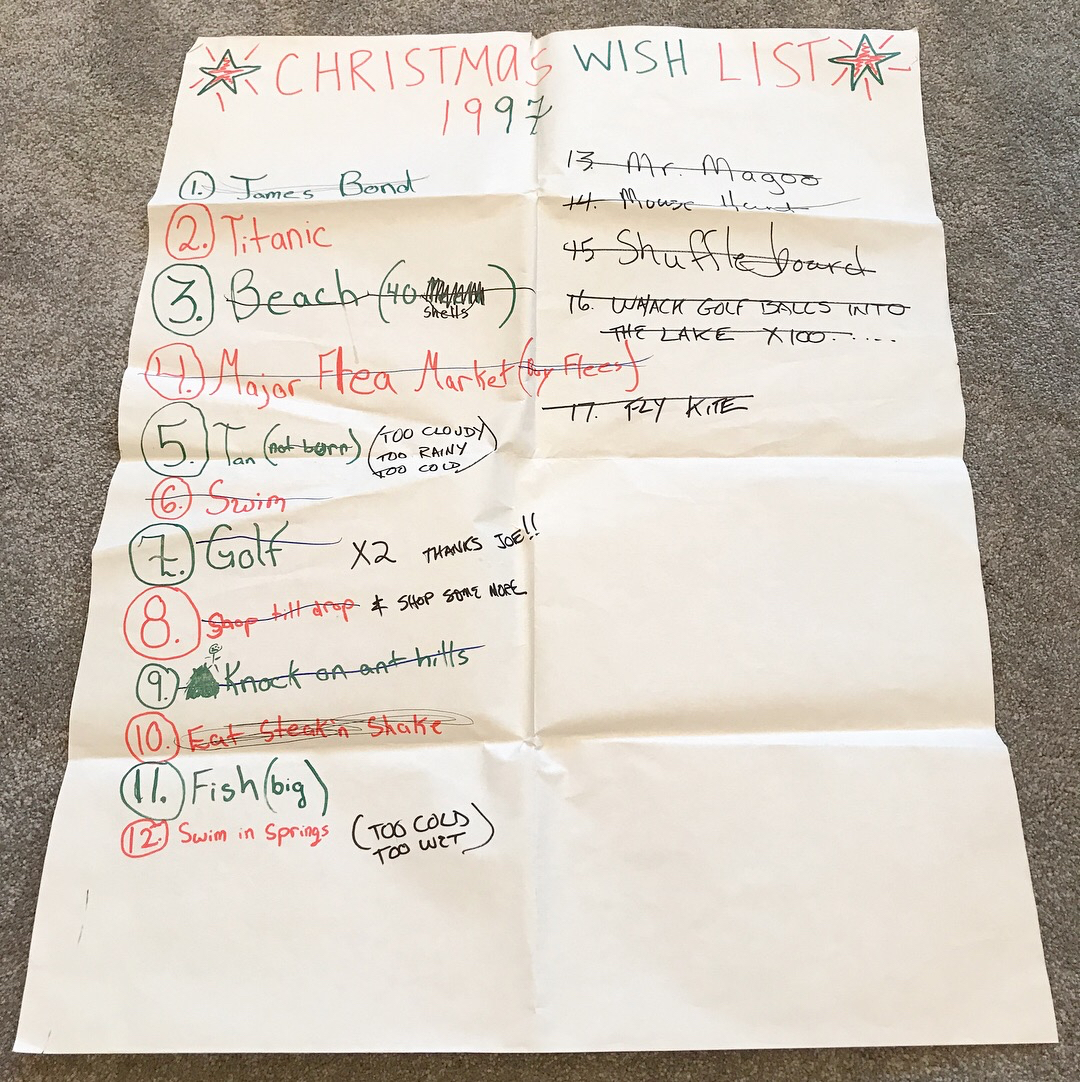 CHRISTMAS WISH LIST
1997
1. James Bond
2. Titanic
3. Beach (40 shells)
4. Major Flea Market (Buy Flees)
5. Tan (not burn) (TOO CLOUDY
TOO RAINY
TOO COLD)
6. Swim
7. Golf X2 THANKS JOE!!
8. Shop till drop & SHOP SOME MORE
9. Knock on ant hills
10. Eat Steak'n Shake
11. Fish (big)
12. Swim in Springs (TOO COLD
TOO WET)
13. Mr. Magoo
14. Mouse Hunt
15 Shuffle board
16. WHACK GOLF BALLS INTO
THE LAKE X100......
17. FLY KITE